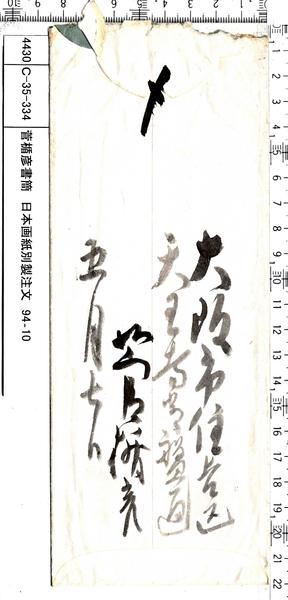 4430 C-35-334 菅楯彦書簡 日本画紙別製注文 94-10
〆
大阪市住吉区
天王寺常盤通
菅楯彦
五月七日